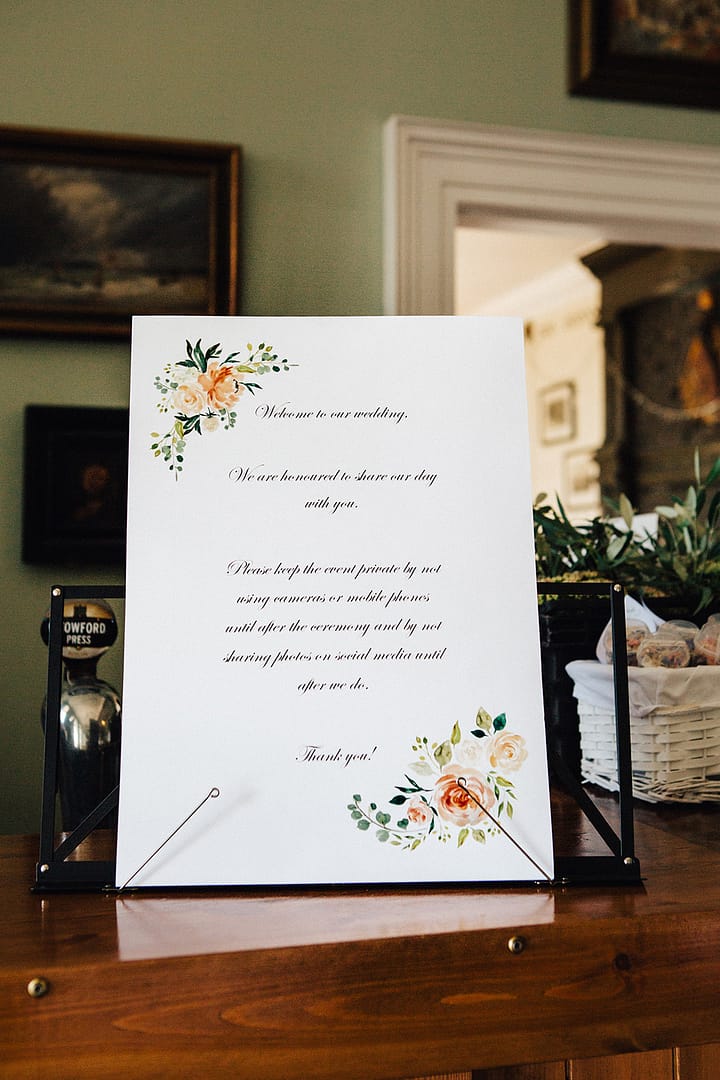 Welcome to our wedding.
We are honoured to share our day
with you.
Please keep the event private by not
using cameras or mobile phones
until after the ceremony and by not
sharing photos on social media until
after we do.
Thank you!
OWFORD
PRESS